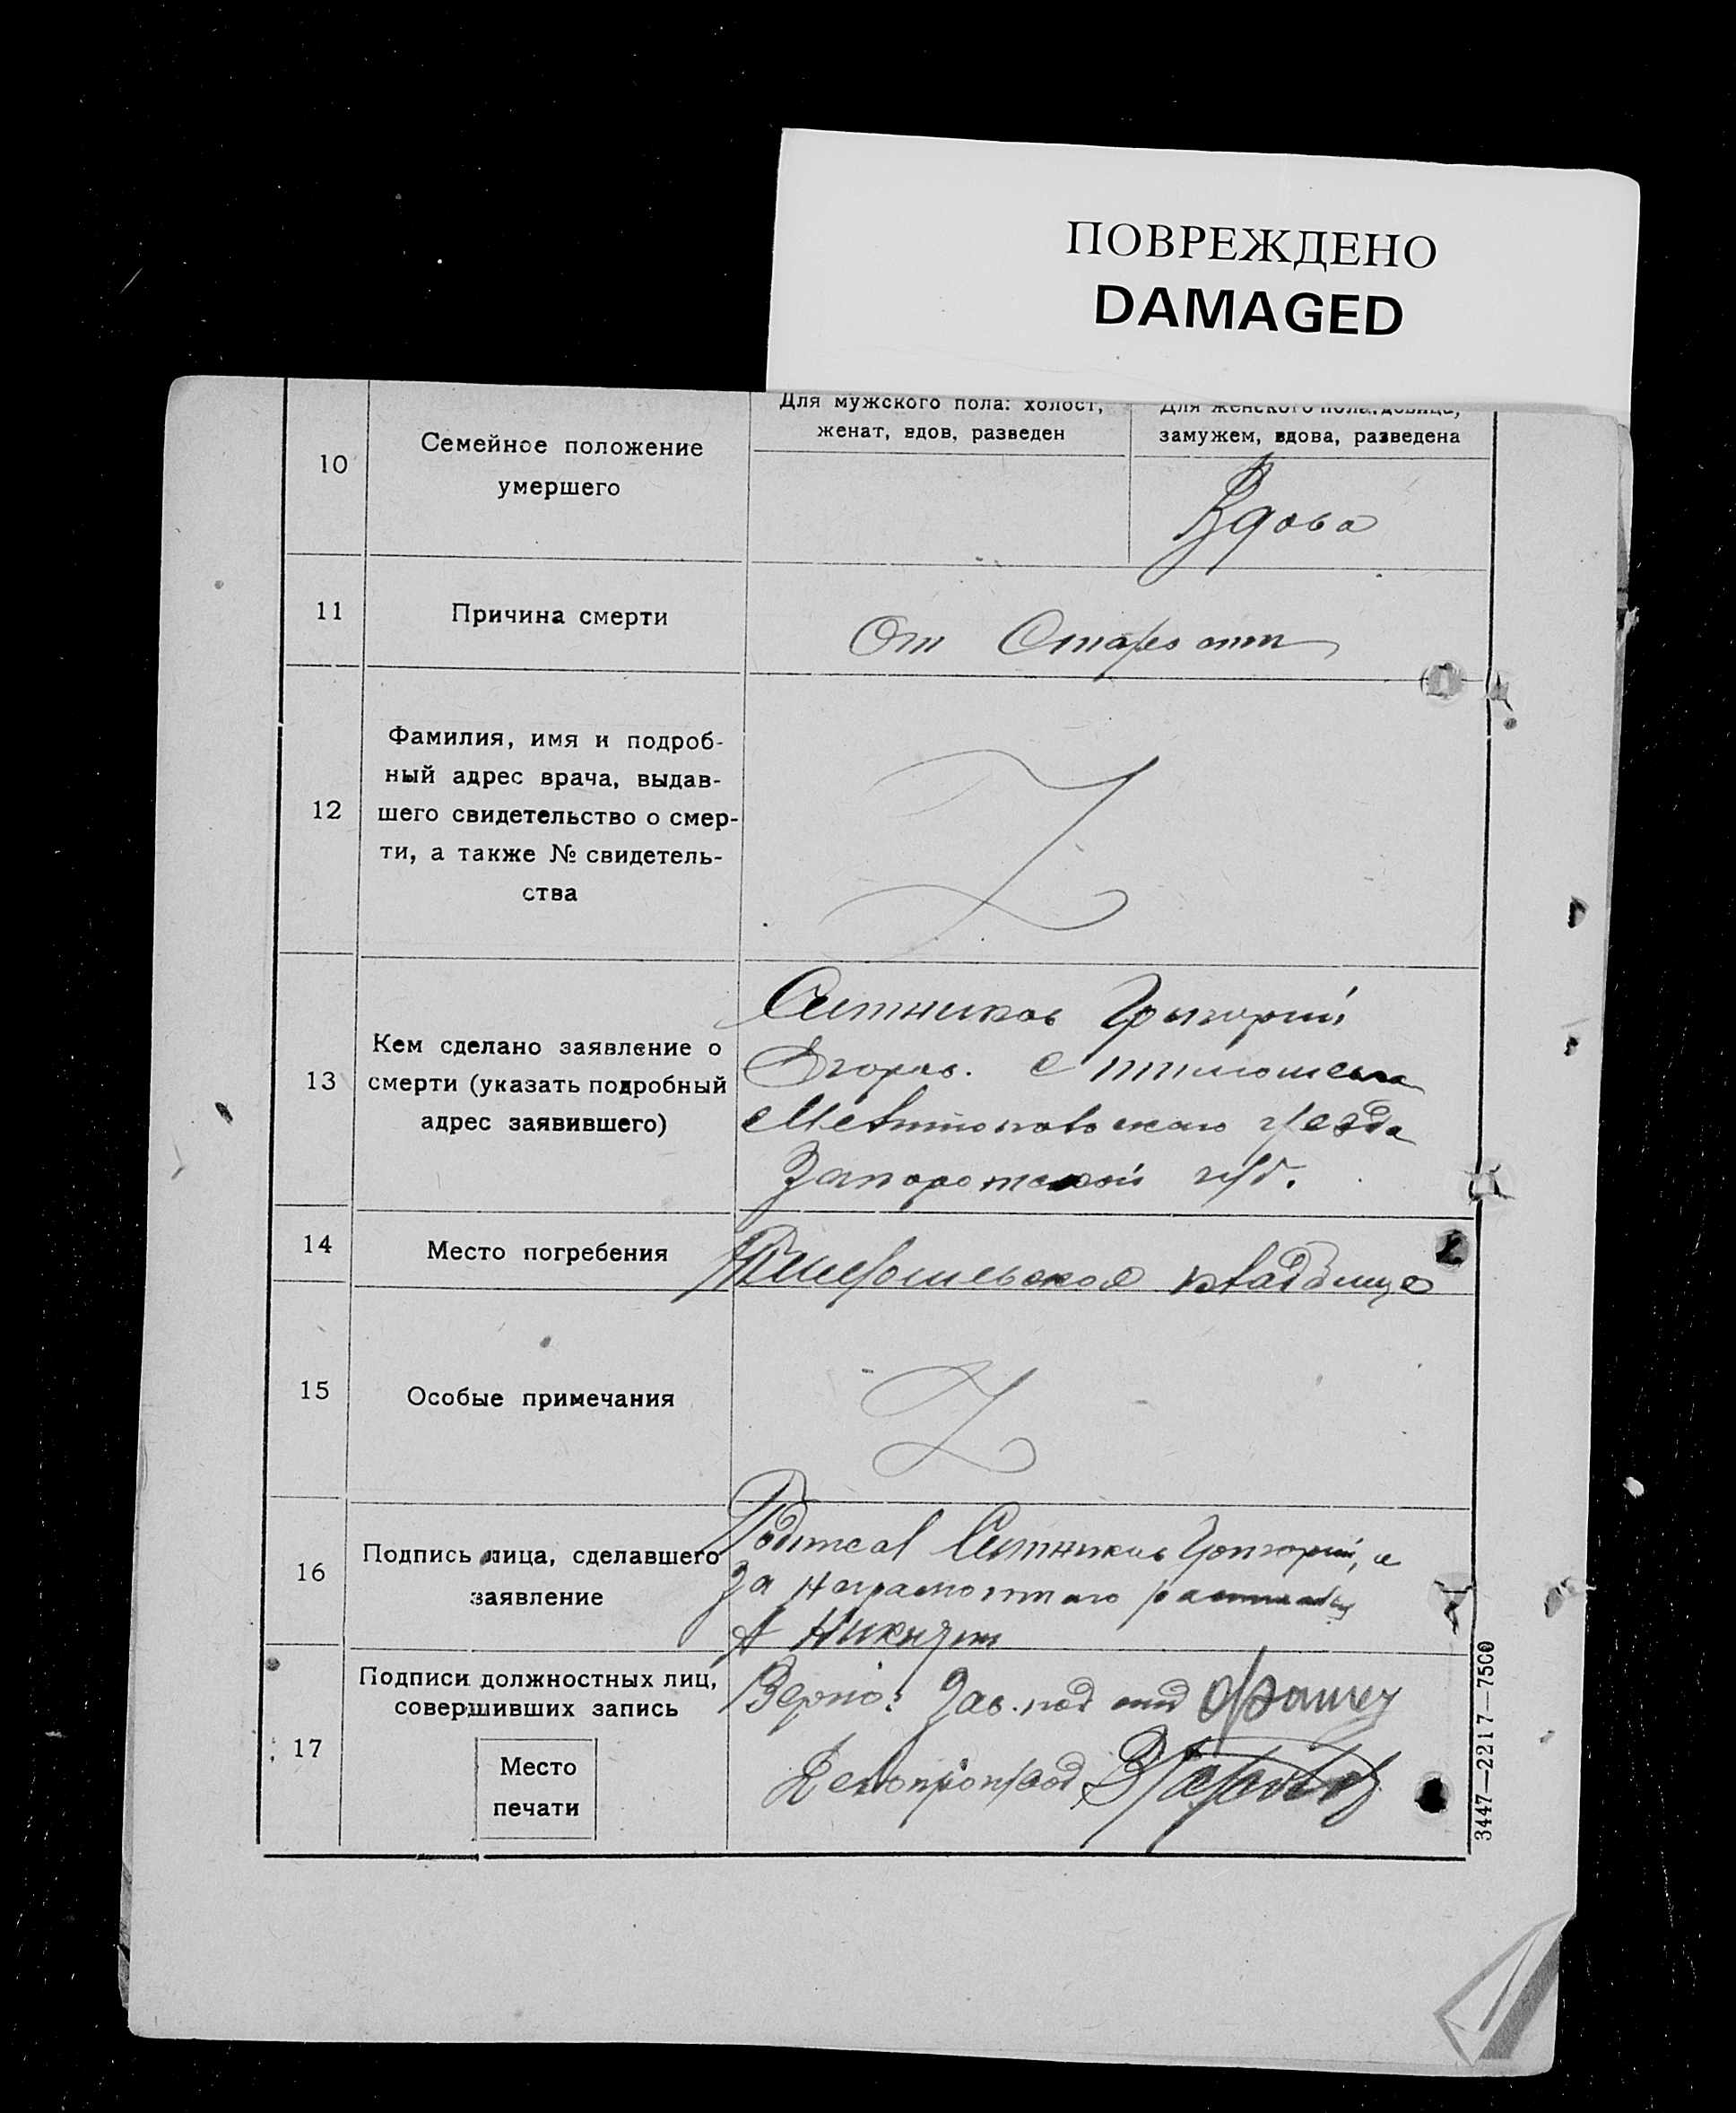 ПОВРЕЖДЕНО
DAMAGED
Для мужского пола: холост,
женат, вдов, разведен
Для женского пола: девица,
замужем, вдова, разведена
10
Семейное положение
умершего
Вдова
11
Причина смерти
От Старости
12
Фамилия, имя и подроб-
ный адрес врача, выдав-
шего свидетельство о смер-
ти, а также № свидетель-
ства
13
Кем сделано заявление о
смерти (указать подробный
адрес заявившего)
Ситников Григорий
Егоров. с
Мелитопольскаго уезда
Запорожской губ.
14
Место погребения
кладбище
15
Особые примечания
16
Подпись лица, сделавшего
заявление
Подписал Ситников Григорий, а
за неграмотного
А
17
Подписи должностных лиц,
совершивших запись
Место
печати
Верно: Зав. под отд
Делопроизвод
3447—2217—7500